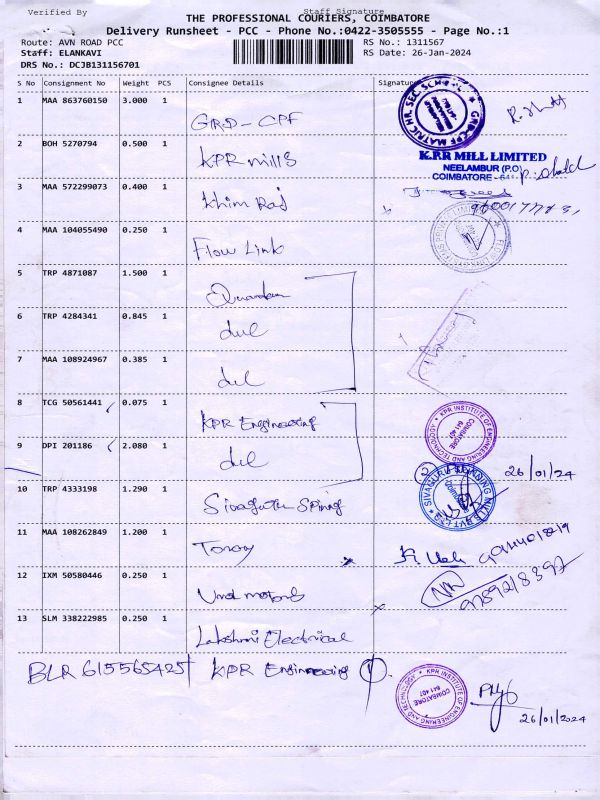 Verified By Staff Signature
THE PROFESSIONAL COURIERS, COIMBATORE
Delivery Runsheet - PCC - Phone No.:0422-3505555 - Page No.:1
Route: AVN ROAD PCC RS No.: 1311567
Staff: ELANKAVI RS Date: 26-Jan-2024
DRS No.: DCJB131156701
S No Consignment No Weight PCS Consignee Details Signature
1 MAA 863760150 3.000 1 GRD - CPF
2 BOH 5270794 0.500 1 KPR mills
K.P.R MILL LIMITED
NEELAMBUR (P.O)
COIMBATORE - 641
3 MAA 572299073 0.400 1 Khim Raj
4 MAA 104055490 0.250 1 Flow Link
5 TRP 4871087 1.500 1
6 TRP 4284341 0.845 1
7 MAA 108924967 0.385 1
8 TCG 50561441 0.075 1 KPR Engineering
KPR INSTITUTE OF ENGINEERING AND TECHNOLOGY
COIMBATORE
641 407
9 DPI 201186 2.080 1
26/01/24
10 TRP 4333198 1.290 1
11 MAA 108262849 1.200 1
12 IXM 50580446 0.250 1
9789218397
13 SLM 338222985 0.250 1 Lakshmi Electrical
BLR 615565425 KPR Engineering 1
KPR INSTITUTE OF ENGINEERING AND TECHNOLOGY
641 407
26/01/2024